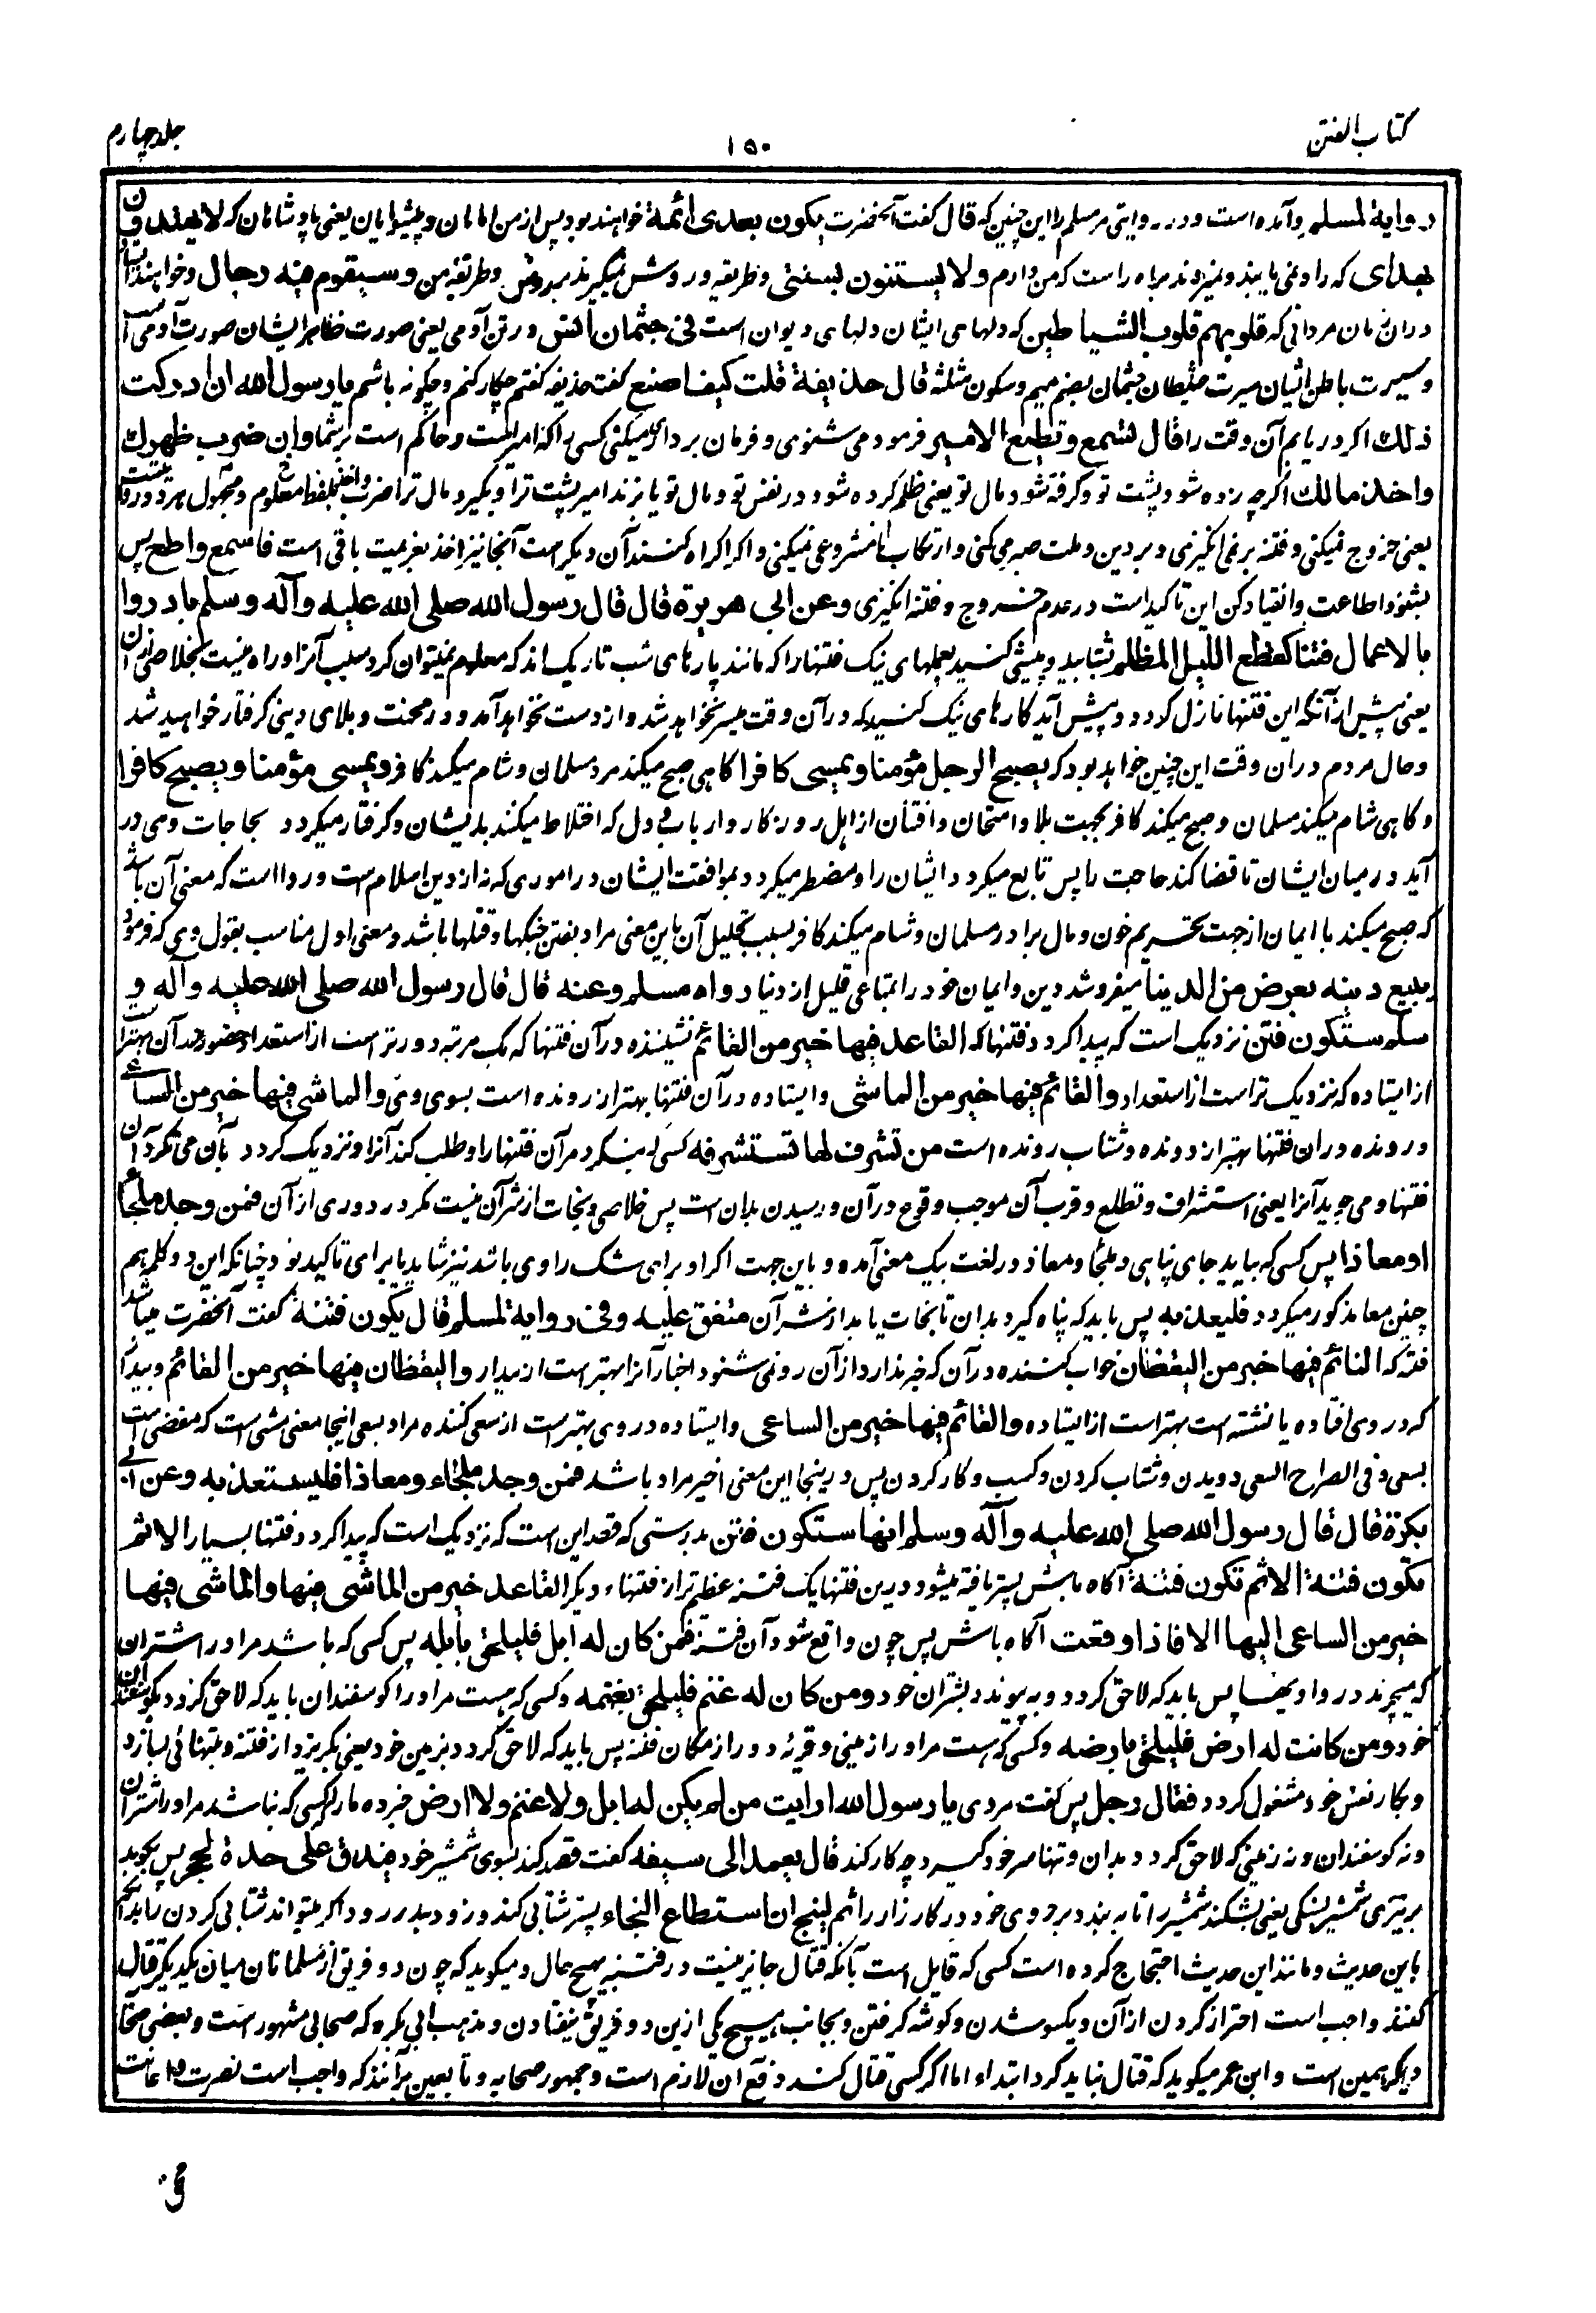 کتاب الفتن
۱۵۰
جلد چهارم
رواية لمسلم وآمده است و در روایتی مر مسلم را این چنین که قال گفت آنحضرت يكون بعدى ائمة خواهند بود پس از من امامان و پیشوایان یعنی پادشاهان که لا يهتدون
بهداى که راه نمی یابند و نمیروند براه راست که من دارم ولا يستنون بسنتى و طریقه و روش نمیگیرند بروش و طریقه من وسيقوم فيه رجال و خواهند ایستاد
دران زمان مردانی که قلوبهم قلوب الشياطين که دلهای ایشان دلهای دیوان است فى جثمان انس در تن آدمی یعنی صورت ظاهر ایشان صورت آدمی است
و سیرت باطن ایشان سیرت شیطان جثمان بضم جیم و سکون مثلثه قال حذيفة قلت كيف اصنع گفت حذیفه گفتم چکار کنم و چگونه باشم يا رسول الله ان ادركت
ذلك اگر دریابم آن وقت را قال تسمع وتطيع الامير فرمود می شنوی و فرمان برداری میکنی کسی را که امیر است و حاکم است بر شما وان ضرب ظهرك
واخذ مالك اگرچه زده شود پشت تو و گرفته شود مال تو یعنی ظلم کرده شود در نفس تو و مال تو یا بزند امیر پشت ترا و بگیرد مال ترا ضرب و اخذ بلفظ معلوم و مجهول هر دو روایتست
یعنی خروج نمیکنی و فتنه بر نمی انگیزی و بر دین و ملت صبر می کنی و ارتکاب نامشروعی نمیکنی و اگر اکراه کنند آن دیگر است آنجا نیز اخذ بعزیمت باقی است فاسمع واطع پس
بشنو و اطاعت و انقیاد کن این تاکید است در عدم خروج و فتنه انگیزی وعن ابى هريرة قال قال رسول الله صلى الله عليه وآله وسلم بادروا
بالاعمال فتنا كقطع الليل المظلم بشتابید و پیشی کنید بعملهای نیک فتنها را که مانند پارهای شب تاریک اند که معلوم نمیتوان کرد سبب آنرا و راه نیست بخلاصی ازان
یعنی پیش از آنکه این فتنها نازل گردد و پیش آید کارهای نیک کنید که در آن وقت میسر نخواهد شد و از دست نخواهد آمد و در محنت و بلای دینی گرفتار خواهید شد
و حال مردم دران وقت این چنین خواهد بود که يصبح الرجل مؤمنا ويمسى كافرا گاهی صبح میکند مرد مسلمان و شام میکند کافر ويمسى مؤمنا ويصبح كافرا
و گاهی شام میکند مسلمان و صبح میکند کافر بجهت بلا و امتحان و افتتان از اهل روزگار و ارباب دول که اختلاط میکند بایشان و گرفتار میگردد بحاجات و می در
آید در میان ایشان تا قضا کند حاجت را پس تابع میگردد ایشان را و مضطر میگردد بموافقت ایشان در اموری که نه از دین اسلام است و روا است که معنی آن باشد
که صبح میکند با ایمان از جهت تحریم خون و مال برادر مسلمان و شام میکند کافر بسبب تحلیل آن باین معنی مراد بفتن جنگها و قتلها باشد و معنی اول مناسب بقول وی که فرمود
يبيع دينه بعرض من الدنيا میفروشد دین و ایمان خود را بمتاعی قلیل از دنیا رواه مسلم وعنه قال قال رسول الله صلى الله عليه وآله و
سلم ستكون فتن نزدیک است که پیدا گردد فتنها که القاعد فيها خير من القائم نشیننده در آن فتنها که یک مرتبه دورتر است از استعداد و حضور در آن بهتر است
از ایستاده که نزدیک تر است از استعداد والقائم فيها خير من الماشى و ایستاده در آن فتنها بهتر از رونده است بسوی وی والماشى فيها خير من الساعى
و رونده دران فتنها بهتر از دونده و شتاب رونده است من تشرف لها تستشرفه کسی که بنگرد مر آن فتنها را و طلب کند آنرا و نزدیک گردد بآن می نگرد آن
فتنها و می جوید آنرا یعنی استشراف و تطلع و قرب آن موجب وقوع در آن و رسیدن بدان است پس خلاصی و نجات از شر آن نیست مگر در دوری از آن فمن وجد ملجأ
او معاذا پس کسی که بیابد جای پناهی و ملجا و معاذ در لغت بیک معنی آمده و باین جهت اگر او برای شک راوی باشد نیز شاید یا برای تاکید بود چنانکه این دو کلمه بهم
چنین معا مذکور میگردد فليعذ به پس باید که پناه گیرد بدان تا نجات یابد از شر آن متفق عليه وفى رواية لمسلم قال تكون فتنة گفت آنحضرت میباشد
فتنه که النائم فيها خير من اليقظان خواب کننده در آن که خبر ندارد از آن و نمی شنود اخبار آنرا بهتر است از بیدار واليقظان فيها خير من القائم و بیدار
که در وی افتاده یا نشسته است بهتر است از ایستاده والقائم فيها خير من الساعى و ایستاده در وی بهتر است از سعی کننده مراد بسعی اینجا معنی مشی است که مفضی است
بسعی و فی الصراح السعی دویدن و شتاب کردن و کسب و کار کردن پس در ینجا این معنی اخیر مراد باشد فمن وجد ملجاء ومعاذا فليستعذ به وعن ابى
بكرة قال قال رسول الله صلى الله عليه وآله وسلم انها ستكون فتن بدرستی که قصه این است که نزدیک است که پیدا گردد فتنها بسیار الا ثم
تكون فتنة الا ثم تكون فتنة آگاه باش پستر یافته میشود درین فتنها یک فتنه عظیم تر از فتنهاء دیگر القاعد خير من الماشى فيها والماشى فيها
خير من الساعى اليها الا فاذا وقعت آگاه باش پس چون واقع شود آن فتنه فمن كان له ابل فليلحق بابله پس کسی که باشد مر او را شتران
که میچرند در وادیها پس باید که لاحق گردد و به پیوندد بشتران خود ومن كان له غنم فليلحق بغنمه و کسی که هست مر او را گوسفندان باید که لاحق گردد بگوسفندان
خود ومن كانت له ارض فليلحق بارضه و کسی که هست مر او را زمینی و قریه دور از مکان فتنه پس باید که لاحق گردد بزمین خود یعنی بگریزد از فتنه و بتنهائی بسازد
و بکار نفس خود مشغول گردد فقال رجل پس گفت مردی يا رسول الله ارايت من لم يكن له ابل ولا غنم ولا ارض خبر ده ما را کسی که نباشد مر او را شتران
و نه گوسفندان و نه زمینی که لاحق گردد بدان و تنها سر خود گیرد چه کار کند قال يعمد الى سيفه گفت قصد کند بسوی شمشیر خود فيدق على حده بحجر پس بکوبد
بر تیزی شمشیر بسنگی یعنی بشکند شمشیر را تا نه بندد بر روی خود در کارزار را ثم لينج ان استطاع النجاء پستر شتابی کند و زود بدر رود اگر میتواند شتابی کردن را بدانکه
باین حدیث و مانند این حدیث احتجاج کرده است کسی که قایل است بآنکه قتال جایز نیست در فتنه بهیچ حال و میگوید که چون دو فریق از مسلمانان میان یکدیگر قتال
کنند واجب است احتراز کردن از آن و یکسو شدن و گوشه گرفتن و بجانب هیچ یکی ازین دو فریق نیفتادن و مذهب ابی بکره که صحابی مشهور است و بعضی صحابه
دیگر همین است و ابن عمر میگوید که قتال نباید کرد ابتداء اما اگر کسی قتال کند دفع آن لازم است و جمهور صحابه و تابعین برآنند که واجب است نصرت و اعانت